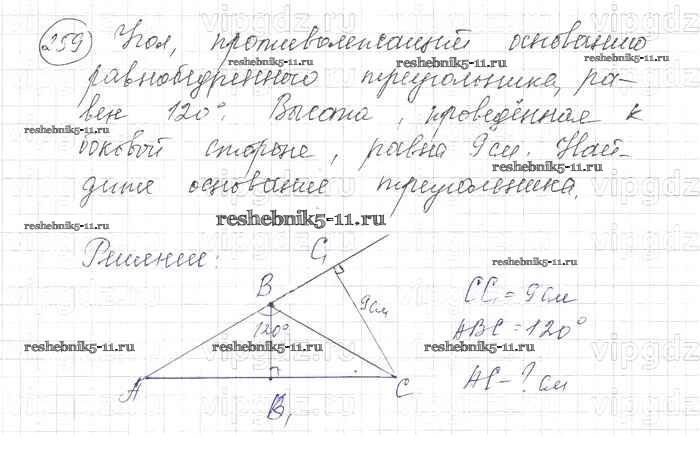 259 Угол, противолежащий основанию
reshebnik5-11.ru reshebnik5-11.ru
равнобедренного треугольника, ра-
вен 120°. Высота, проведённая к
reshebnik5-11.ru reshebnik5-11.ru
боковой стороне, равна 9 см. Най-
reshebnik5-11.ru
дите основание треугольника.
reshebnik5-11.ru reshebnik5-11.ru
Решение:
C₁
reshebnik5-11.ru
B
9 см
CC₁ = 9 см
120°
ABC = 120°
reshebnik5-11.ru reshebnik5-11.ru reshebnik5-11.ru
A
C
AC - ? см
B₁
vipgdz